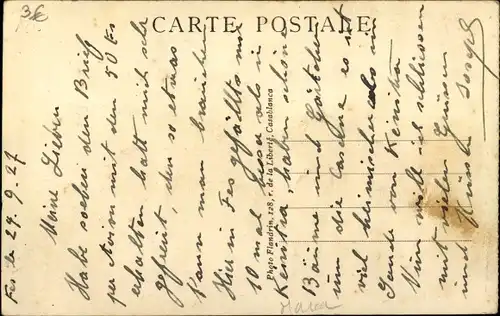 3€
CARTE POSTALE
Photo Flandrin, 128, r. de la Liberté, Casablanca
Fes, le 29.9.27
Meine Lieben
Habe soeben den Brief
per Avion mit den 50 Fs
erhalten hatt mich sehr
gefreut, den so etwas
kann man brauchen
Hier in Fes gefällts mir
10 mal besser als in
Kenitra, haben schöne
Bäume und Gärtchen
um die Caserne es ist
viel heimischer als im
Sande von Kenitra
Nun will ich schliessen
mit vielen Grüssen
und Küssen Joseph